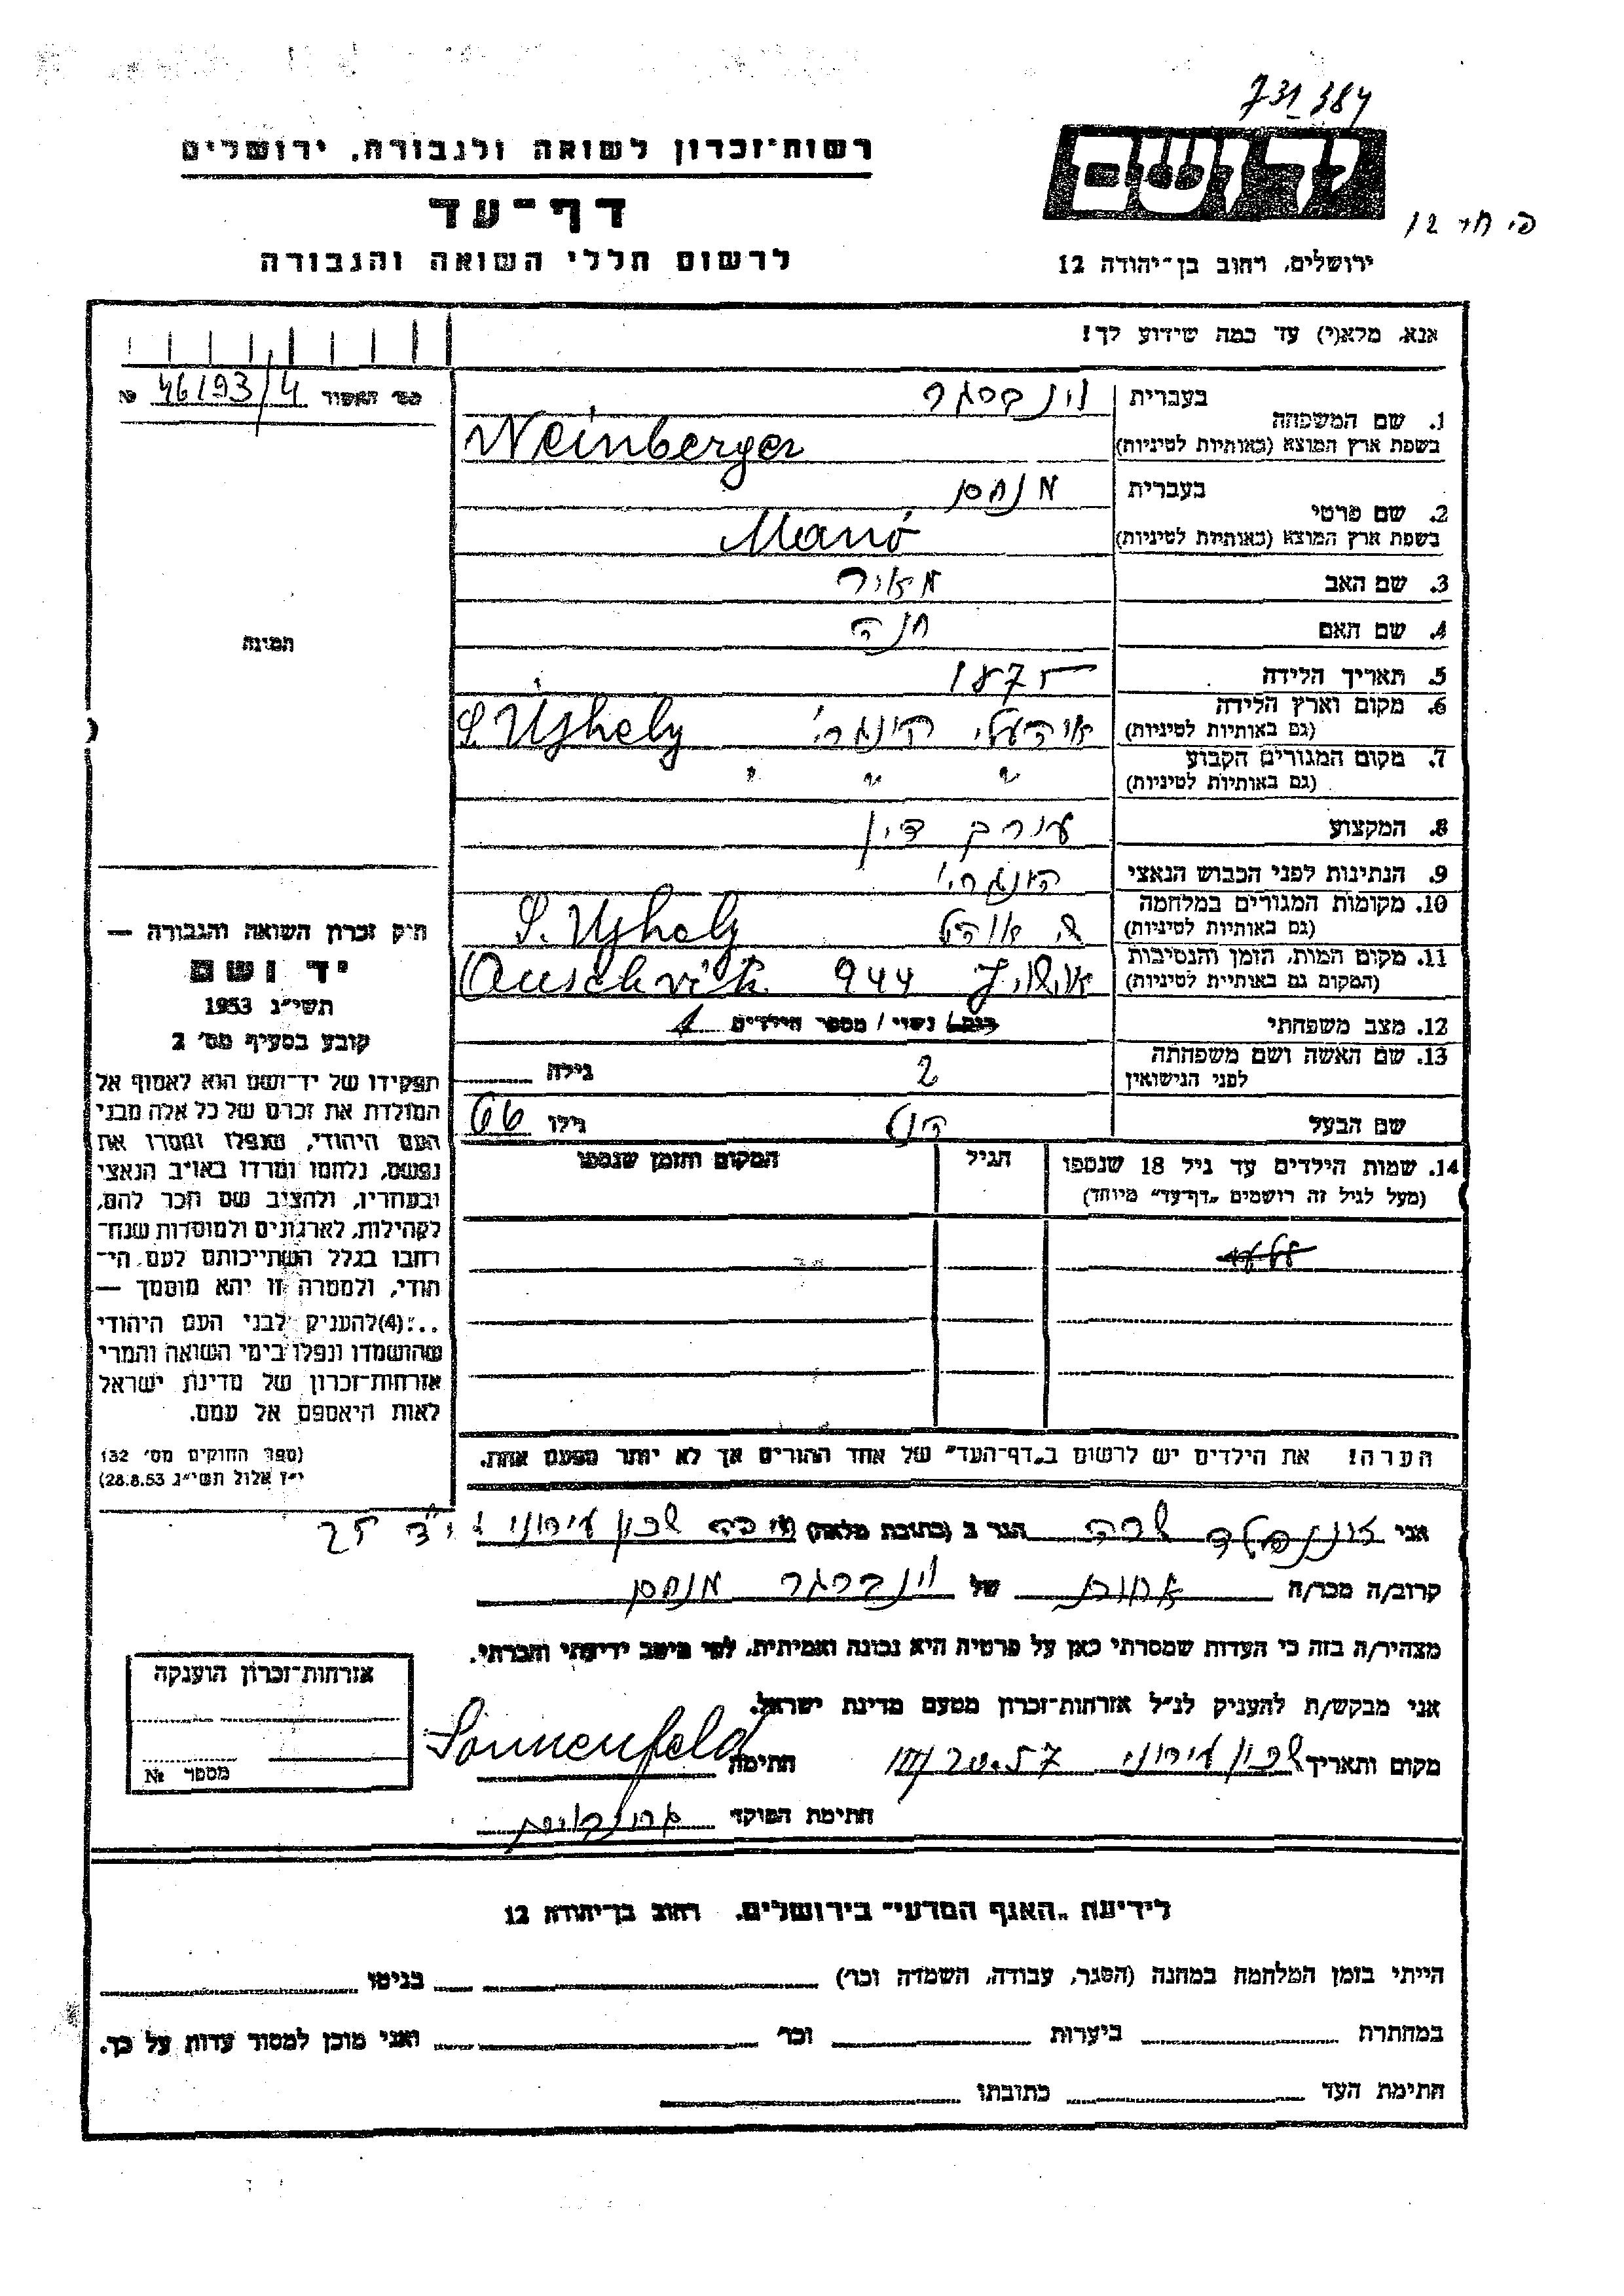 731384
רשות-זכרון לשואה ולגבורה, ירושלים
ידושם
דף-עד
פי חד 12
לרשום חללי השואה והגבורה
ירושלים, רחוב בן-יהודה 12
אנא, מלא(י) עד כמה שידוע לך!
מס' האשור 46193/4 №
בעברית וינברגר
1. שם המשפחה
בשפת ארץ המוצא (באותיות לטיניות) Weinberger
בעברית מנחם
2. שם פרטי
בשפת ארץ המוצא (באותיות לטיניות) Manó
3. שם האב מאיר
4. שם האם חנה
תמונה
5. תאריך הלידה 1875
6. מקום וארץ הלידה
(גם באותיות לטיניות) אוהעלי הונגרי' S. Ujhely
7. מקום המגורים הקבוע
(גם באותיות לטיניות) " " "
8. המקצוע עורך דין
9. הנתינות לפני הכבוש הנאצי הונגרי'
10. מקומות המגורים במלחמה
(גם באותיות לטיניות) S. Ujhely
11. מקום המות, הזמן והנסיבות
(המקום גם באותיות לטיניות) 944 Auschvitz
12. מצב משפחתי רוק/ נשוי / מספר הילדים 1
13. שם האשה ושם משפחתה
לפני הנישואין גילה
שם הבעל גילו 66
חוק זכרון השואה והגבורה —
יד ושם
תשי"ג 1953
קובע בסעיף מס' 2
תפקידו של יד-ושם הוא לאסוף אל
המולדת את זכרם של כל אלה מבני
העם היהודי, שנפלו ומסרו את
נפשם, נלחמו ומרדו באויב הנאצי
ובעוזריו, ולהציב שם וזכר להם,
לקהילות, לארגונים ולמוסדות שנח-
רחבו בגלל השתייכותם לעם הי-
הודי, ולמטרה זו יהא מוסמך —
..:(4) להעניק לבני העם היהודי
שהושמדו ונפלו בימי השואה והמרי
אזרחות-זכרון של מדינת ישראל
לאות היאספם אל עמם.
(ספר החוקים מס' 132
י"ז אלול תשי"ג 28.8.53)
14. שמות הילדים עד גיל 18 שנספו הגיל המקום והזמן שנספו
(מעל לגיל זה רושמים "דף-עד" מיוחד)
הערה! את הילדים יש לרשום ב"דף-העד" של אחד ההורים אך לא יותר מפעם אחת.
אני זוננפלד שרה הגר ב (כתובת מלאה) חיפה שכון עירוני
קרוב/ה מכר/ה אחות של וינברגר מנחם
מצהיר/ה בזה כי העדות שמסרתי כאן על פרטיה היא נכונה ואמיתית, לפי מיטב ידיעתי והכרתי.
אני מבקש/ת להעניק לנ"ל אזרחות-זכרון מטעם מדינת ישראל.
מקום ותאריך שכון עירוני 20.57 חתימה Sonnenfeld
חתימת הפוקד
אזרחות-זכרון הוענקה
מספר №
לידיעת "האגף המדעי" בירושלים, רחוב בן-יהודה 12
הייתי בזמן המלחמה במחנה (הסגר, עבודה, השמדה וכו') בגיטו
במחתרת ביערות וכו' ואני מוכן למסור עדות על כך.
חתימת העד כתובתו